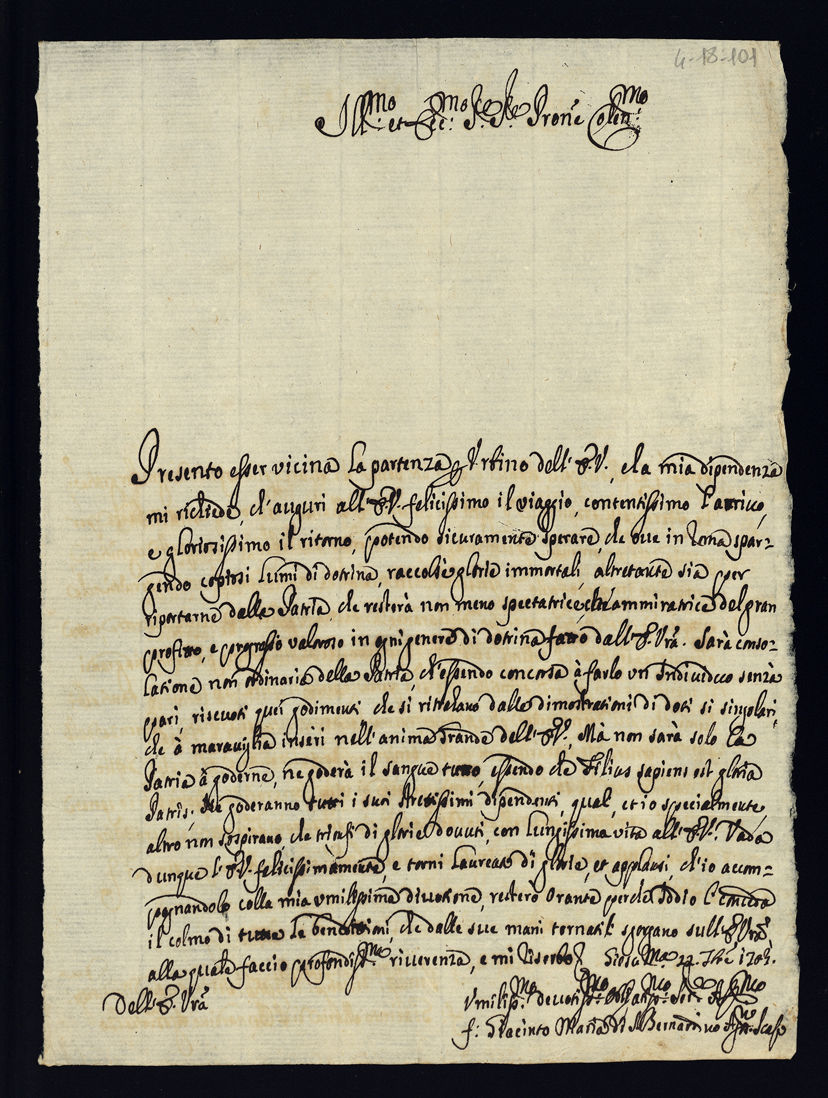 4-18-101
Ill:mo et Ecc:mo Sig.re Sig.re Prone Colen:mo
Presento esser vicina la partenza p Urbino dell' E.V., e la mia dipendenza
mi richiede, ch'auguri all' E.V. felicissimo il viaggio, contentissimo l'arrivo,
e gloriosissimo il ritorno, potendo sicuramente sperare, che ove in Roma spar-
gendo copiosi lumi di dotrina, raccolse glorie immortali, altretante sia per
riportarne dalla Patria, che resterà non meno spectatrice, ch'ammiratrice del gran
profitto, e progresso valoroso in ogni genere di dotrina fatto dall' E. Vra. Sarà conso-
latione non ordinaria della Patria, ch'essendo concorsa à farlo un Individuo senza
pari, riscuoti quei godimenti che si ritrahano dalle dimostrationi di doti si singolari,
che à maraviglia inserì nell'anima grande dell' E.V. Mà non sarà solo la
Patria à goderne, ne goderà il sangue tutto, essendo che Filius sapiens est gloria
Patris; Ne goderanno tutti i suoi strettissimi dipendenti, quali, et io specialmente
altro non sospirano, che trionfi di glorie dovuti, con lunghissima vita all' E.V. Vada
dunque l' E.V. felicissimamente, e torni laureato di glorie, et applausi, ch'io accom-
pagnandolo colla mia umilissima divotione, resterò Orante perche Iddio l'
il colmo di tutte le beneditioni, che dalle sue mani sgorgano sull' E. Vra,
alla quale faccio profondiss:ma riverenza, e mi
Dell' E. Vra
Umiliss:mo devotiss:mo
f: Giacinto Maria di S. Bernardino